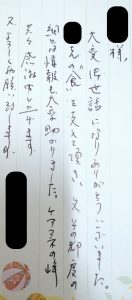 様、
大変御世話になりありがとうございました。
の「食」を支えて頂き、又その都度の
細かな情報も大変助かりました。ケアマネの
共々感謝申し上げます。
又よろしくお願い致します。